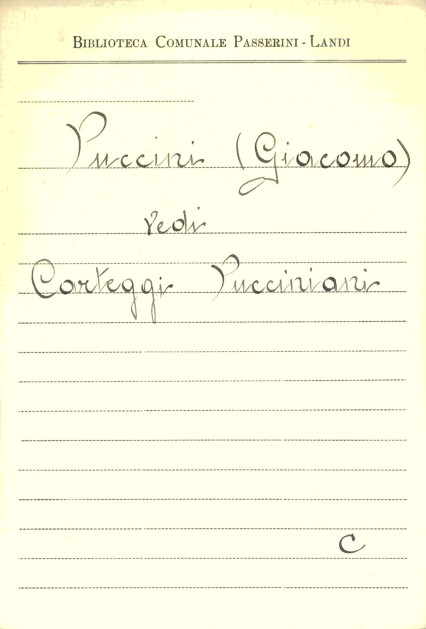 Biblioteca Comunale Passerini - Landi
Puccini (Giacomo)
vedi
Carteggi Pucciniani
C